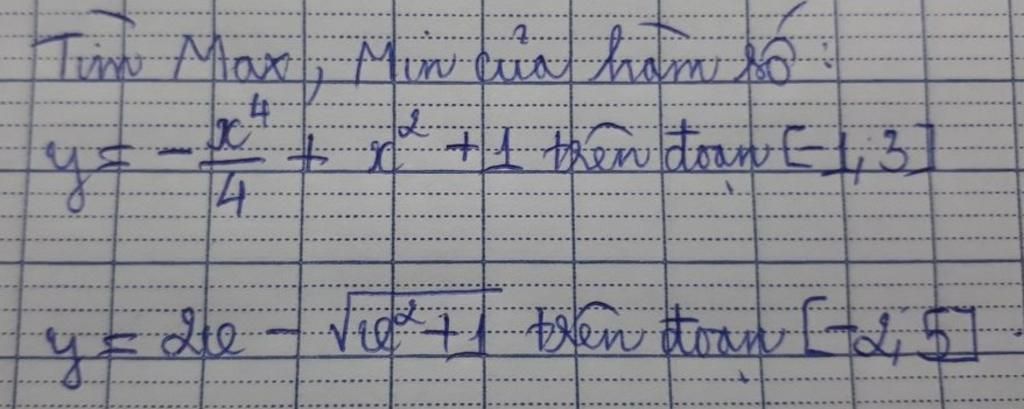 Tìm Max, Min của hàm số:
y = -x^4/4 + x^2 + 1 trên đoạn [-1, 3]
y = 2x - √(x^2 + 1) trên đoạn [-2, 5].